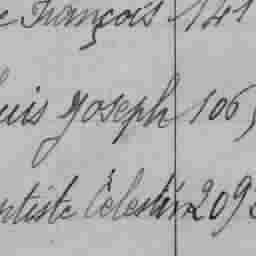 François 141
uis Joseph 106
ptiste Célestin 209